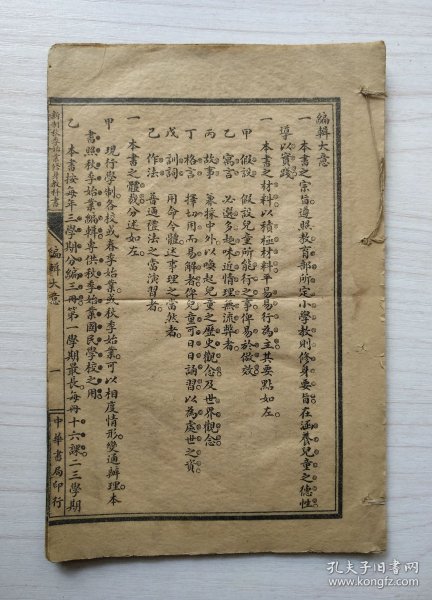 編輯大意
一 本書之宗旨遵照教育部所定小學教則修身要旨在涵養兒童之德性
導以實踐
一 本書之材料以積極材料平易易行為主其要點如左
甲 假設 假設兒童所能行之事俾易於倣效
乙 寓言 必選多趣味近情理無流弊者
丙 故事 兼採中外以喚起兒童之歷史觀念及世界觀念
丁 格言 擇切用而易解者俾兒童可日日誦習以為處世之資
戊 訓詞 用命令體述事理之當然者
己 作法 普通禮法之當演習者
一 本書之體裁分述如左
甲 現行學制各校或春季始業或秋季始業可以相度情形變通辦理本
書照秋季始業編輯專供秋季始業國民學校之用
乙 本書按每年三學期分編三冊第一學期最長每冊十六課二三學期
新制秋季始業修身教科書 編輯大意 一 中華書局印行
孔夫子旧书网
www.kongfz.com